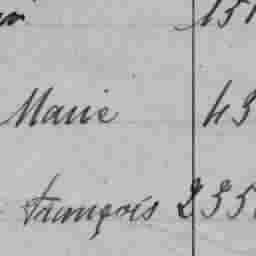 Marie 43
françois 235